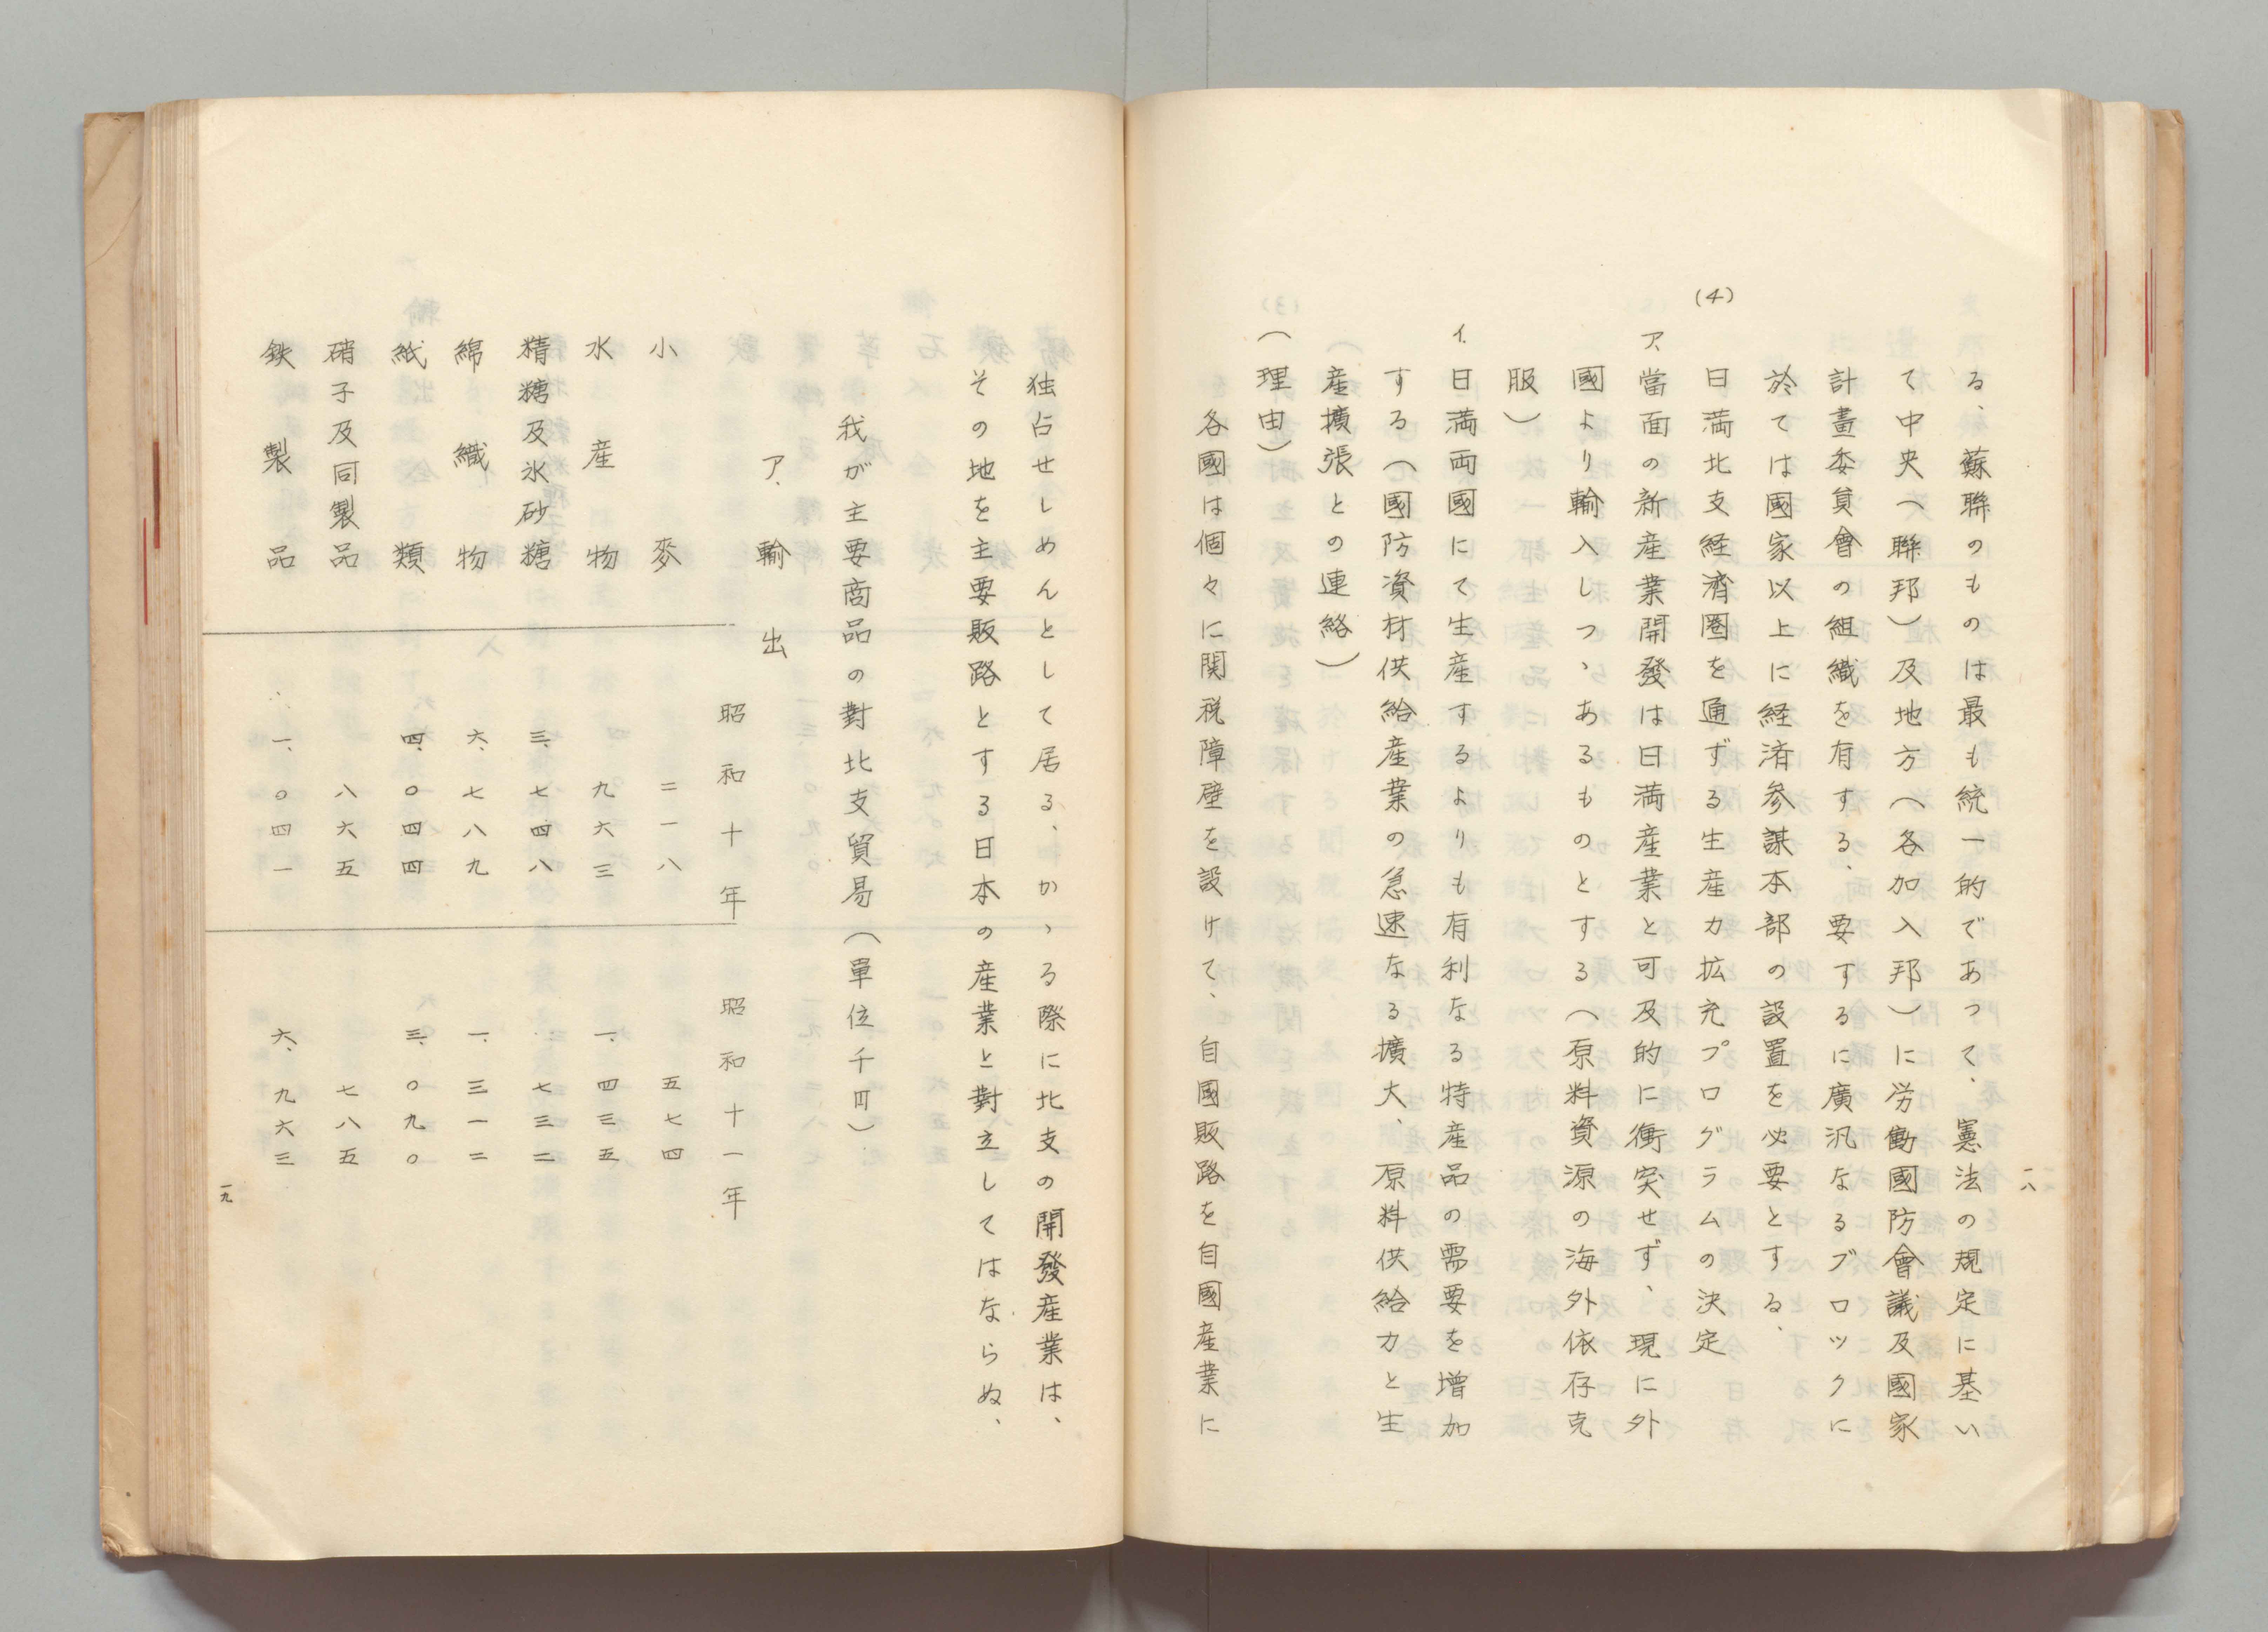 る、蘇聯のものは最も統一的であつて、憲法の規定に基い
て中央（聯邦）及地方（各加入邦）に労働國防會議及國家
計畫委員會の組織を有する、要するに廣汎なるブロックに
於ては國家以上に経済参謀本部の設置を必要とする、
(4)
日満北支経済圏を通ずる生産力拡充プログラムの決定
ア、當面の新産業開發は日満産業と可及的に衝突せず、現に外
國より輸入しつゝあるものとする（原料資源の海外依存克
服）
イ、日満両國にて生産するよりも有利なる特産品の需要を増加
する（國防資材供給産業の急速なる擴大、原料供給力と生
産擴張との連絡）
（理由）
各國は個々に関税障壁を設けて、自國販路を自國産業に
一八
独占せしめんとして居る、かゝる際に北支の開發産業は、
その地を主要販路とする日本の産業と對立してはならぬ、
我が主要商品の對北支貿易（單位千円）
ア、輸出
昭和十年 昭和十一年
小麥 二一八 五七四
水産物 九六三 一、四三五
精糖及氷砂糖 三、七四八 七三二
綿織物 六、七八九 一、三一二
紙類 四、〇四四 三、〇九〇
硝子及同製品 八六五 七八五
鉄製品 一、〇四一 六、九六三
一九